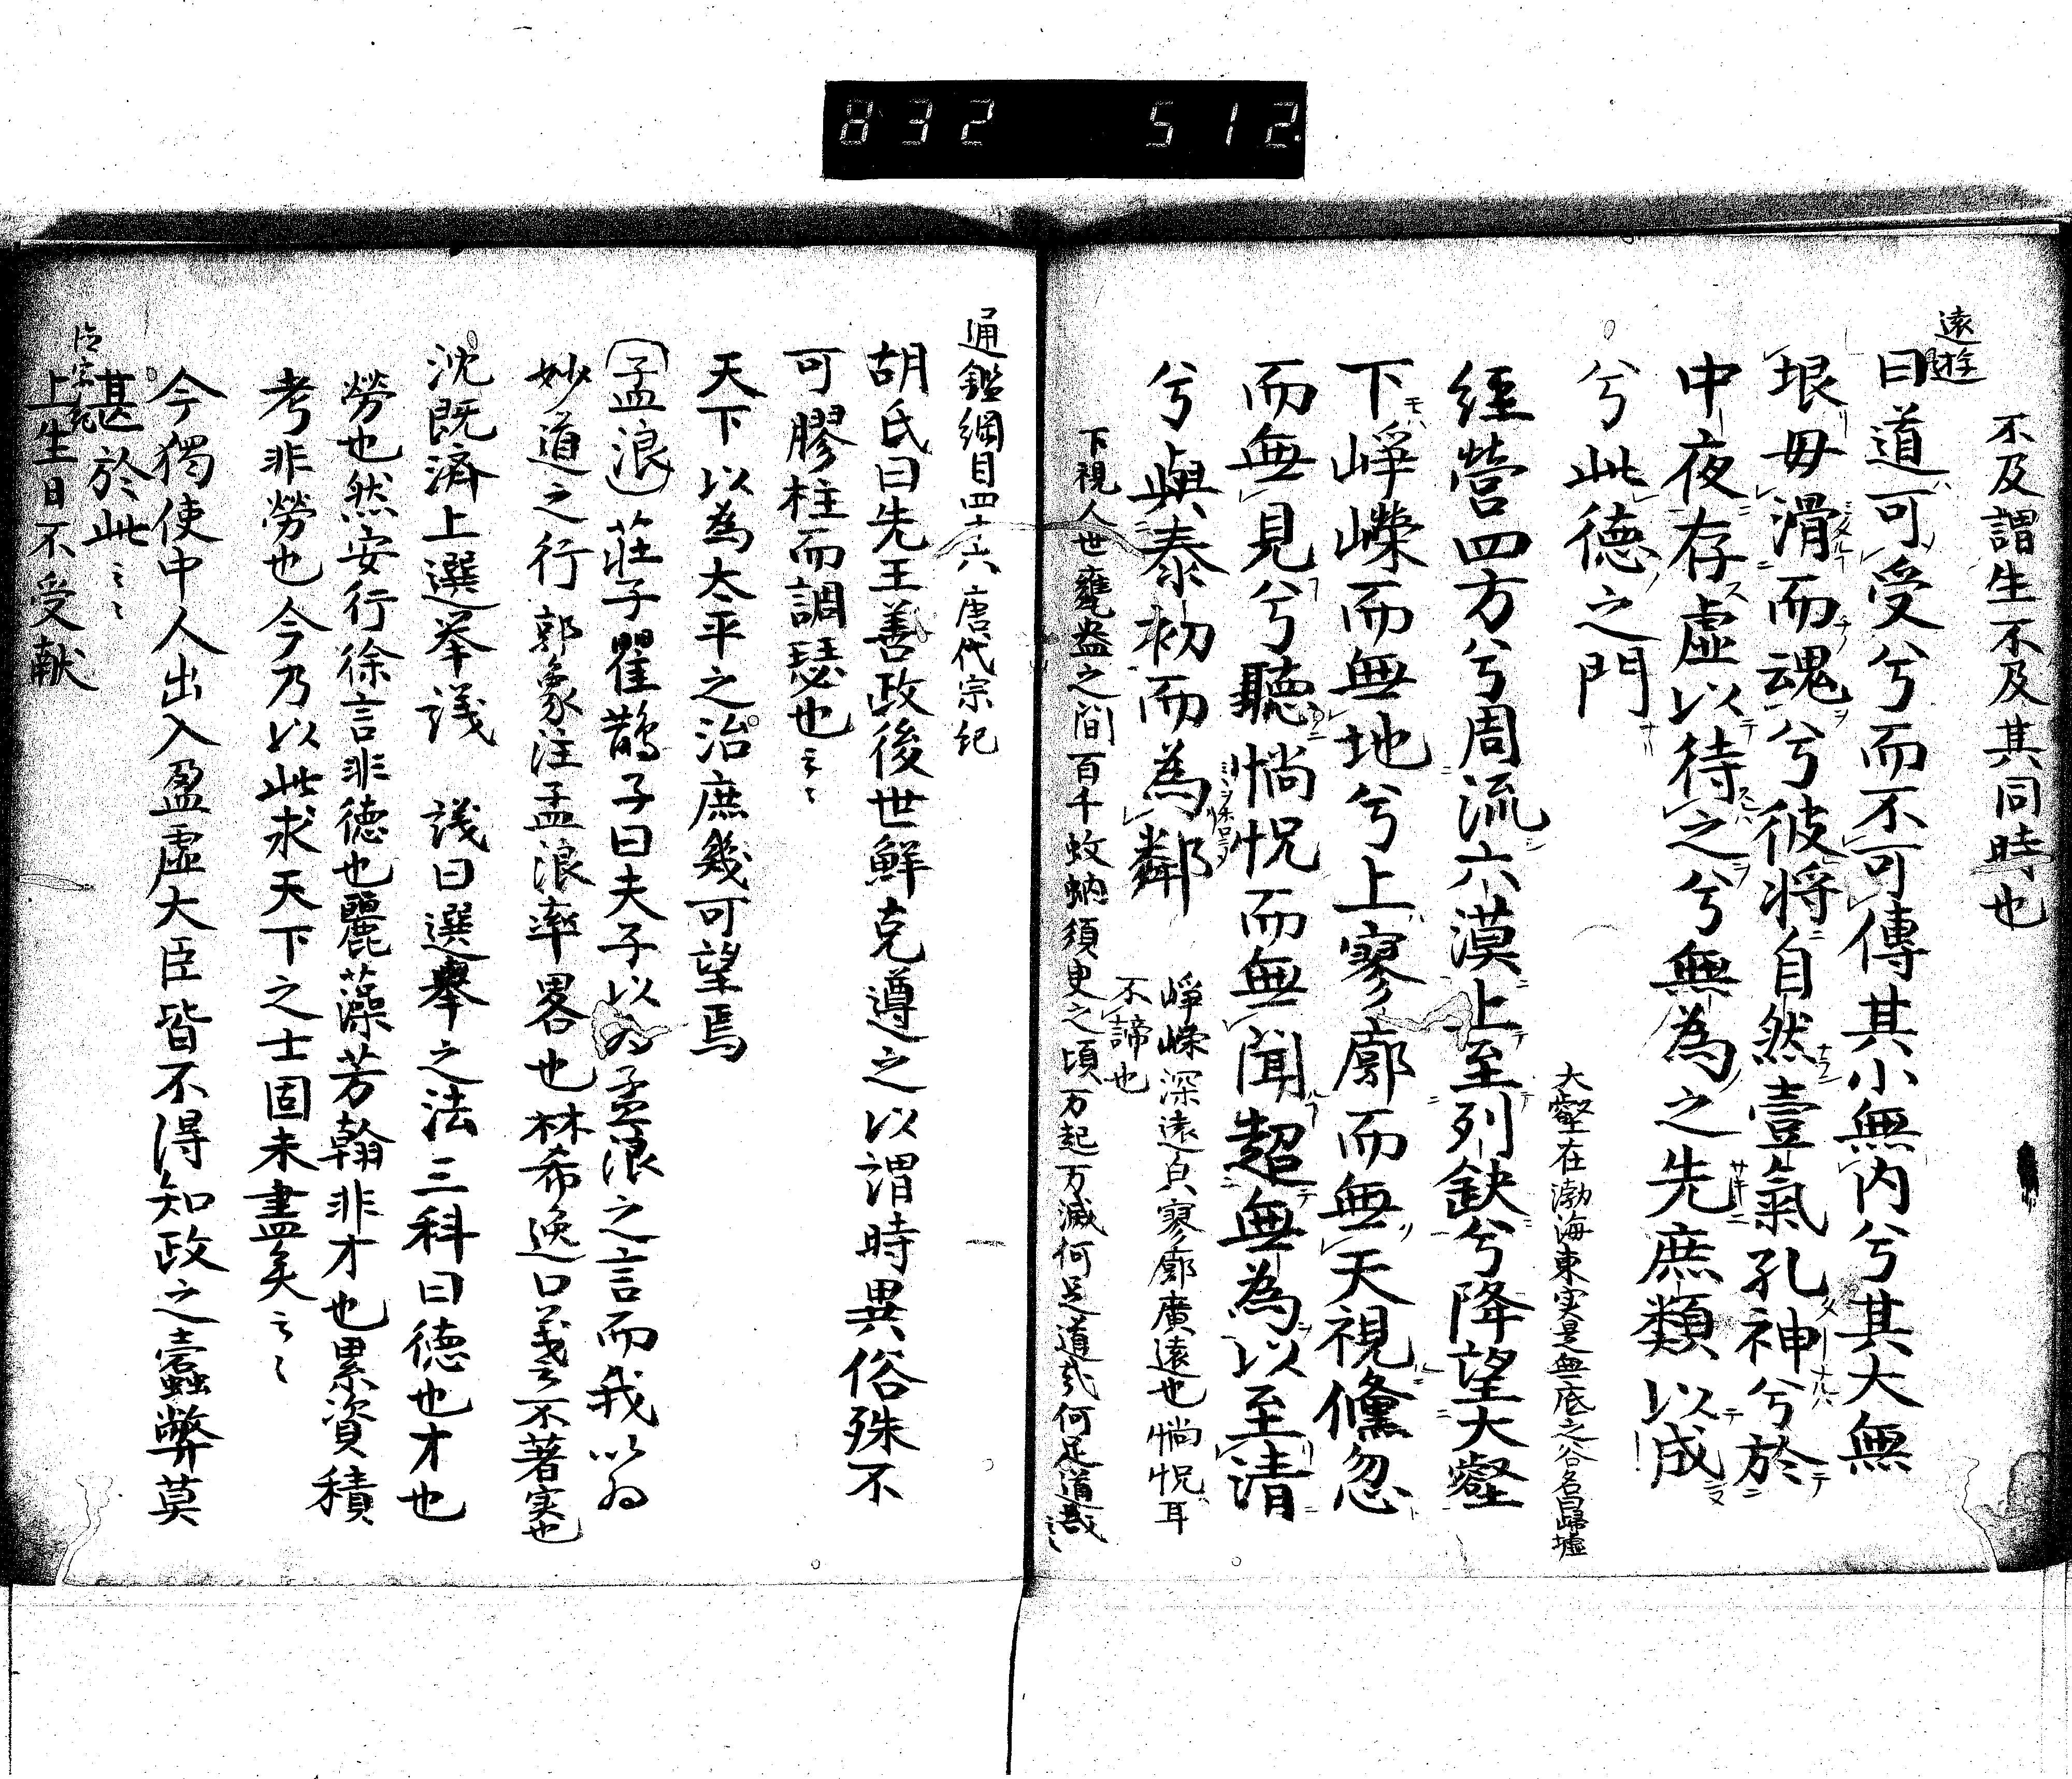 832 512
不及謂生不及其同時也
遠遊
曰道可受兮而不可傳其小無内兮其大無
垠毋滑而魂兮彼将自然壹氣孔神兮於
中夜存虚以待之兮無為之先庶類以成
兮此徳之門
大壑在渤海東実是無底之谷名曰歸墟
經營四方兮周流六漠上至列缺兮降望大壑
下崢嶸而無地兮上寥廓而無天視儵忽
而無見兮聽惝怳而無聞超無為以至清
兮與泰初而為鄰
崢嶸深遠皃寥廓廣遠也惝怳耳
不諦也
下視人世甕盎之間百千蚊蚋須臾之頃万起万滅何足道哉何足道哉
通鑑綱目四十六 唐代宗紀
胡氏曰先王善政後世鮮克遵之以謂時異俗殊不
可膠柱而調瑟也云々
天下以為太平之治庶幾可望焉
孟浪 莊子瞿鵲子曰夫子以為孟浪之言而我以為
妙道之行 郭象注孟浪率畧也林希逸口義云不著実也
沈既済上選挙議 議曰選擧之法三科曰徳也才也
勞也然安行徐言非徳也麗藻芳翰非才也累資積
考非勞也今乃以此求天下之士固未盡矣云々
今獨使中人出入盈虚大臣皆不得知政之蠹弊莫
甚於此云々
上生日不受献